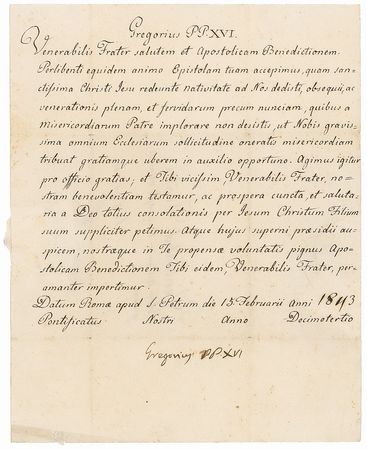 Gregorius PP. XVI.
Venerabilis Frater salutem et Apostolicam Benedictionem.
Perlibenti equidem animo Epistolam tuam accepimus, quam san-
ctissima Christi Jesu redeunte nativitate ad Nos dedisti, obsequii, ac
venerationis plenam, et fervidarum precum nunciam, quibus a
misericordiarum Patre implorare non desistis, ut Nobis gravis-
sima omnium Ecclesiarum sollicitudine oneratis misericordiam
tribuat gratiamque uberem in auxilio opportuno. Agimus igitur
pro officio gratias; et Tibi vicissim, Venerabilis Frater, no-
stram benevolentiam testamur, ac prospera cuncta, et saluta-
ria a Deo totius consolationis per Jesum Christum Filium
suum suppliciter petimus. Atque hujus superni præsidii au-
spicem, nostræque in Te propensæ voluntatis pignus Apo-
stolicam Benedictionem Tibi eidem, Venerabilis Frater, per-
amanter impertimur.
Datum Romæ apud S. Petrum die 15 Februarii Anni 1843
Pontificatus Nostri Anno Decimotertio
Gregorius PP. XVI